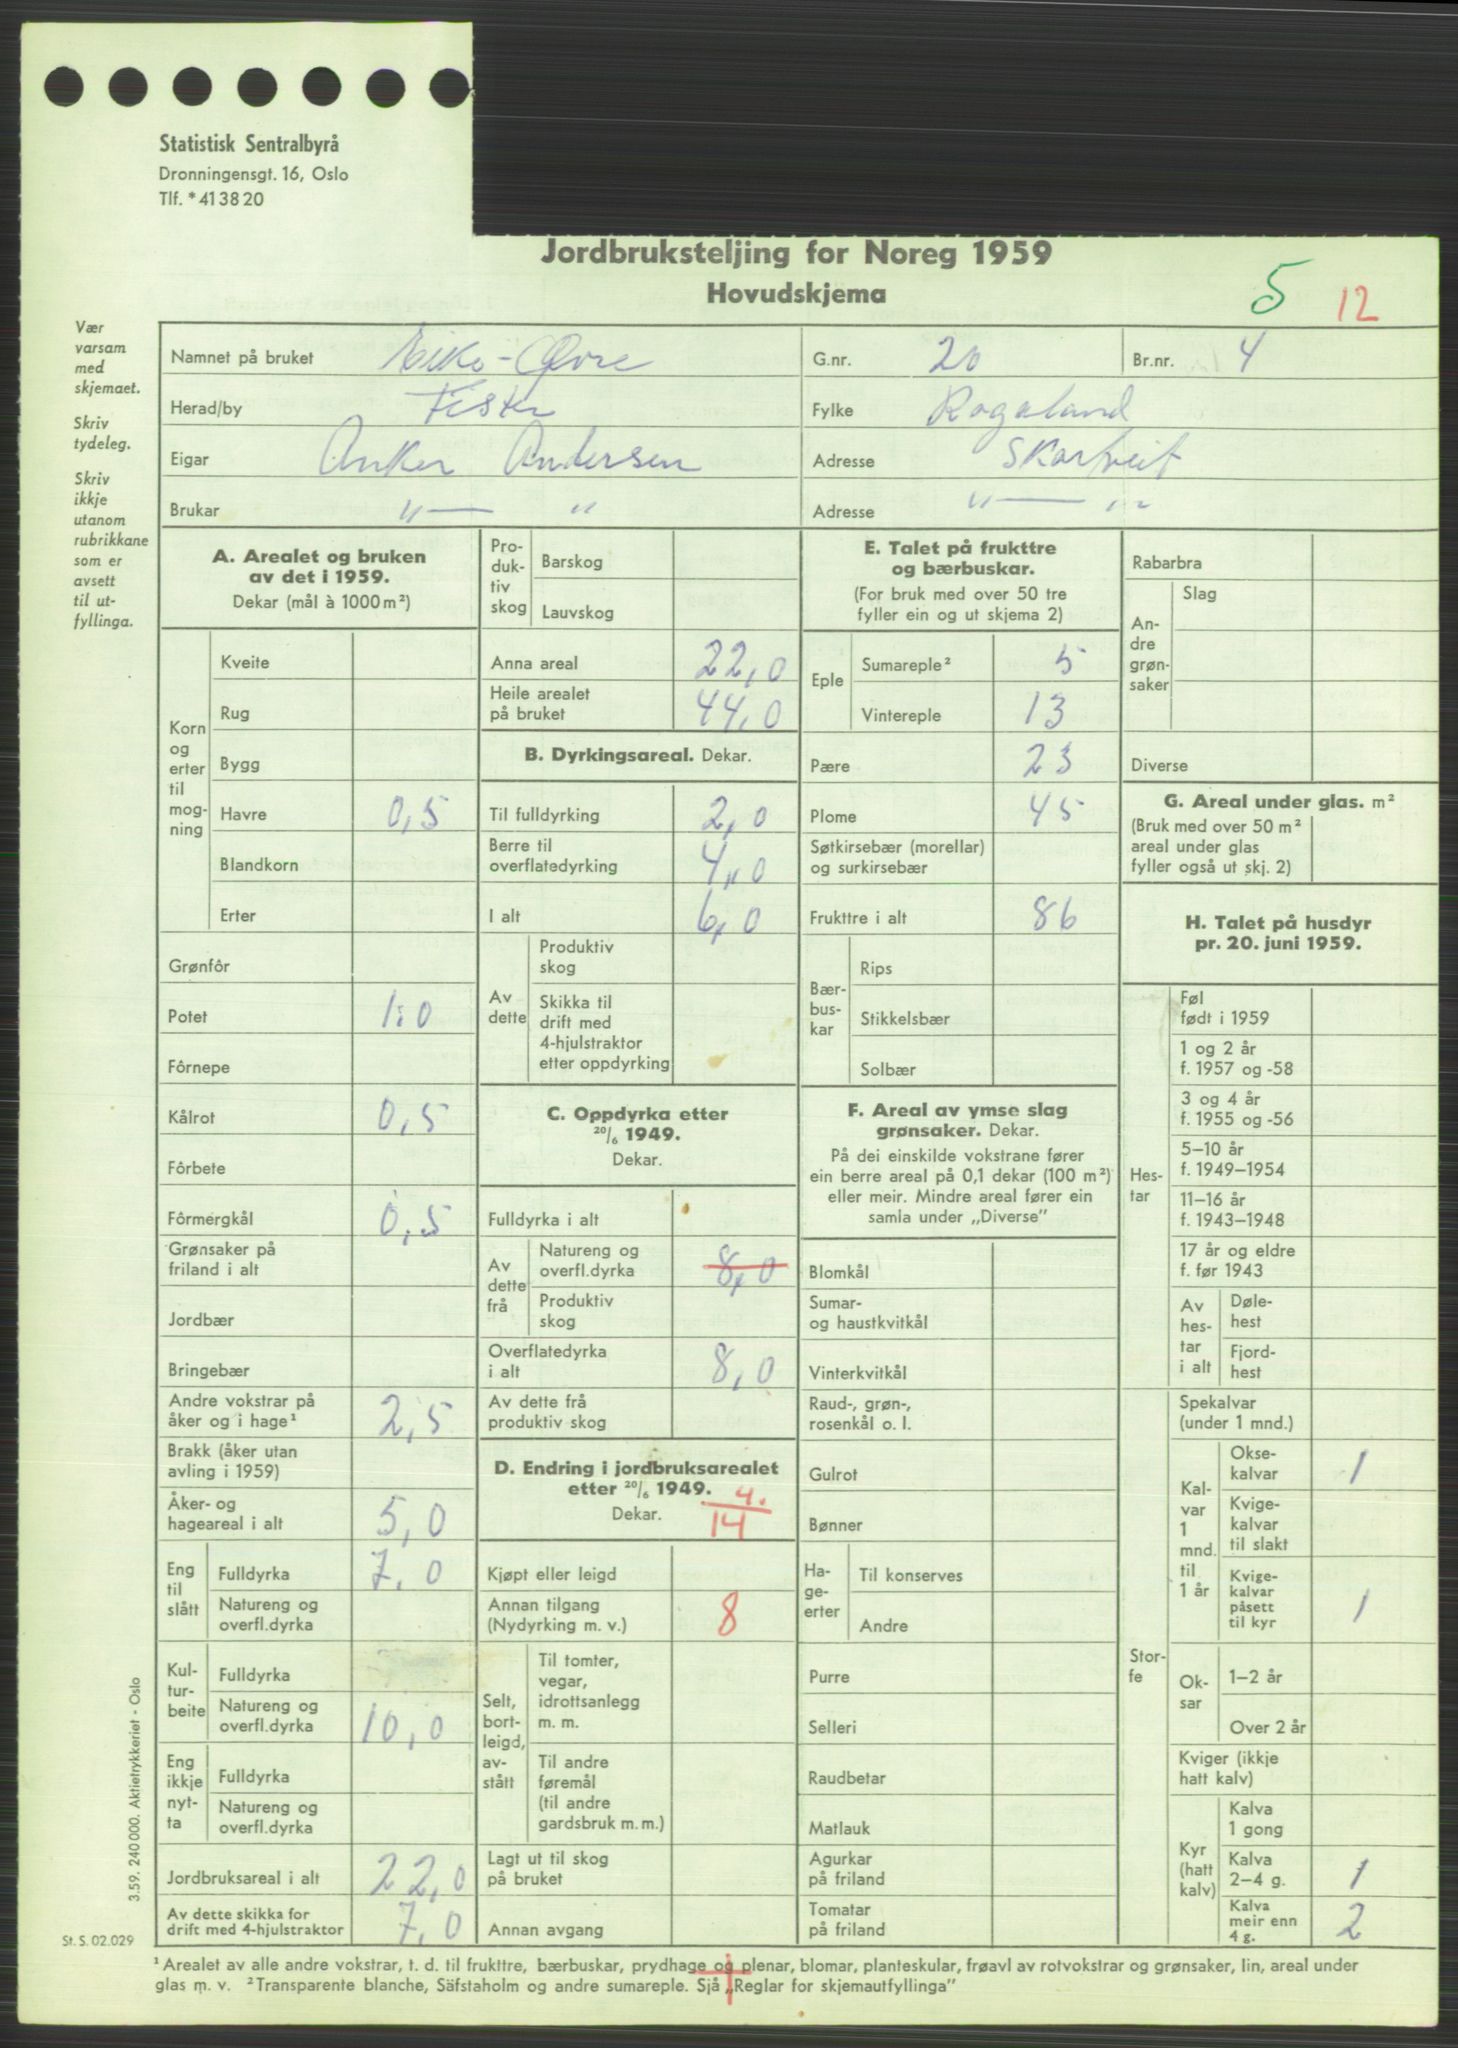 Statistisk Sentralbyrå
Dronningensgt. 16, Oslo
Tlf. *41 38 20
Jordbruksteljing for Noreg 1959
Hovudskjema
5 12
Vær
varsam
med
skjemaet.
Skriv
tydeleg.
Skriv
ikkje
utanom
rubrikkane
som er
avsett
til ut-
fyllinga.
Namnet på bruket -Øvre G.nr. 20 Br.nr. 4
Herad/by Fister Fylke Rogaland
Eigar Anker Andersen Adresse
Brukar " — " Adresse " — " "
A. Arealet og bruken
av det i 1959.
Dekar (mål à 1000 m²)
Korn
og
erter
til
mog-
ning
Kveite
Rug
Bygg
Havre 0,5
Blandkorn
Erter
Grønfôr
Potet 1,0
Fôrnepe
Kålrot 0,5
Fôrbete
Fôrmergkål 0,5
Grønsaker på
friland i alt
Jordbær
Bringebær
Andre vokstrar på
åker og i hage¹ 2,5
Brakk (åker utan
avling i 1959)
Åker- og
hageareal i alt 5,0
Eng
til
slått
Fulldyrka 7,0
Natureng og
overfl.dyrka
Kul-
tur-
beite
Fulldyrka
Natureng og
overfl.dyrka 10,0
Eng
ikkje
nyt-
ta
Fulldyrka
Natureng og
overfl.dyrka
Jordbruksareal i alt 22,0
Av dette skikka for
drift med 4-hjulstraktor 7,0
Pro-
duk-
tiv
skog
Barskog
Lauvskog
Anna areal 22,0
Heile arealet
på bruket 44,0
B. Dyrkingsareal. Dekar.
Til fulldyrking 2,0
Berre til
overflatedyrking 4,0
I alt 6,0
Av
dette
Produktiv
skog
Skikka til
drift med
4-hjulstraktor
etter oppdyrking
C. Oppdyrka etter
20/6 1949.
Dekar.
Fulldyrka i alt
Av
dette
frå
Natureng og
overfl.dyrka 8,0
Produktiv
skog
Overflatedyrka
i alt 8,0
Av dette frå
produktiv skog
D. Endring i jordbruksarealet
etter 20/6 1949.
Dekar. 4.
14
Kjøpt eller leigd
Annan tilgang
(Nydyrking m. v.) 8
Selt,
bort-
leigd,
av-
stått
Til tomter,
vegar,
idrottsanlegg
m. m.
Til andre
føremål
(til andre
gardsbruk m. m.)
Lagt ut til skog
på bruket
Annan avgang
E. Talet på frukttre
og bærbuskar.
(For bruk med over 50 tre
fyller ein og ut skjema 2)
Eple
Sumareple² 5
Vintereple 13
Pære 23
Plome 45
Søtkirsebær (morellar)
og surkirsebær
Frukttre i alt 86
Bær-
bus-
kar
Rips
Stikkelsbær
Solbær
F. Areal av ymse slag
grønsaker. Dekar.
På dei einskilde vokstrane fører
ein berre areal på 0,1 dekar (100 m²)
eller meir. Mindre areal fører ein
samla under „Diverse”
Blomkål
Sumar-
og haustkvitkål
Vinterkvitkål
Raud-, grøn-,
rosenkål o. l.
Gulrot
Bønner
Ha-
ge-
erter
Til konserves
Andre
Purre
Selleri
Raudbetar
Matlauk
Agurkar
på friland
Tomatar
på friland
Rabarbra
An-
dre
grøn-
saker
Slag
Diverse
G. Areal under glas. m²
(Bruk med over 50 m²
areal under glas
fyller også ut skj. 2)
H. Talet på husdyr
pr. 20. juni 1959.
Hes-
tar
Føl
født i 1959
1 og 2 år
f. 1957 og -58
3 og 4 år
f. 1955 og -56
5–10 år
f. 1949–1954
11–16 år
f. 1943–1948
17 år og eldre
f. før 1943
Av
hes-
tar
i alt
Døle-
hest
Fjord-
hest
Stor-
fe
Spekalvar
(under 1 mnd.)
Kal-
var
1
mnd.
til
1 år
Okse-
kalvar 1
Kvige-
kalvar
til slakt
Kvige-
kalvar
påsett
til kyr 1
Ok-
sar
1–2 år
Over 2 år
Kviger (ikkje
hatt kalv)
Kyr
(hatt
kalv)
Kalva
1 gong
Kalva
2–4 g. 1
Kalva
meir enn
4 g. 2
3.59. 240 000. Aktietrykkeriet - Oslo
St. S. 02.029
¹ Arealet av alle andre vokstrar, t. d. til frukttre, bærbuskar, prydhage og plenar, blomar, planteskular, frøavl av rotvokstrar og grønsaker, lin, areal under
glas m. v. ² Transparente blanche, Säfstaholm og andre sumareple. Sjå „Reglar for skjemautfyllinga”